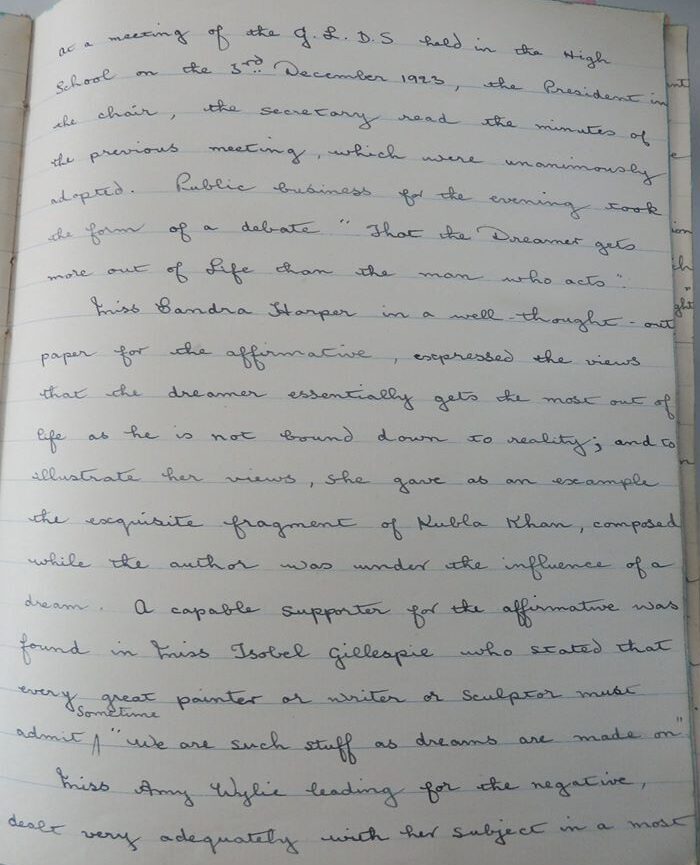 at a meeting of the G. L. D. S held in the High
School on the 3rd December 1923, the President in
the chair, the secretary read the minutes of
the previous meeting, which were unanimously
adopted. Public business for the evening took
the form of a debate "That the Dreamer gets
more out of Life than the man who acts".
Miss Sandra Harper in a well-thought-out
paper for the affirmative, expressed the views
that the dreamer essentially gets the most out of
life as he is not bound down to reality; and to
illustrate her views, she gave as an example
the exquisite fragment of Kubla Khan, composed
while the author was under the influence of a
dream. A capable supporter for the affirmative was
found in Miss Isobel Gillespie who stated that
every great painter or writer or sculptor must
Sometime
admit "We are such stuff as dreams are made on"
Miss Amy Wylie leading for the negative,
dealt very adequately with her subject in a most